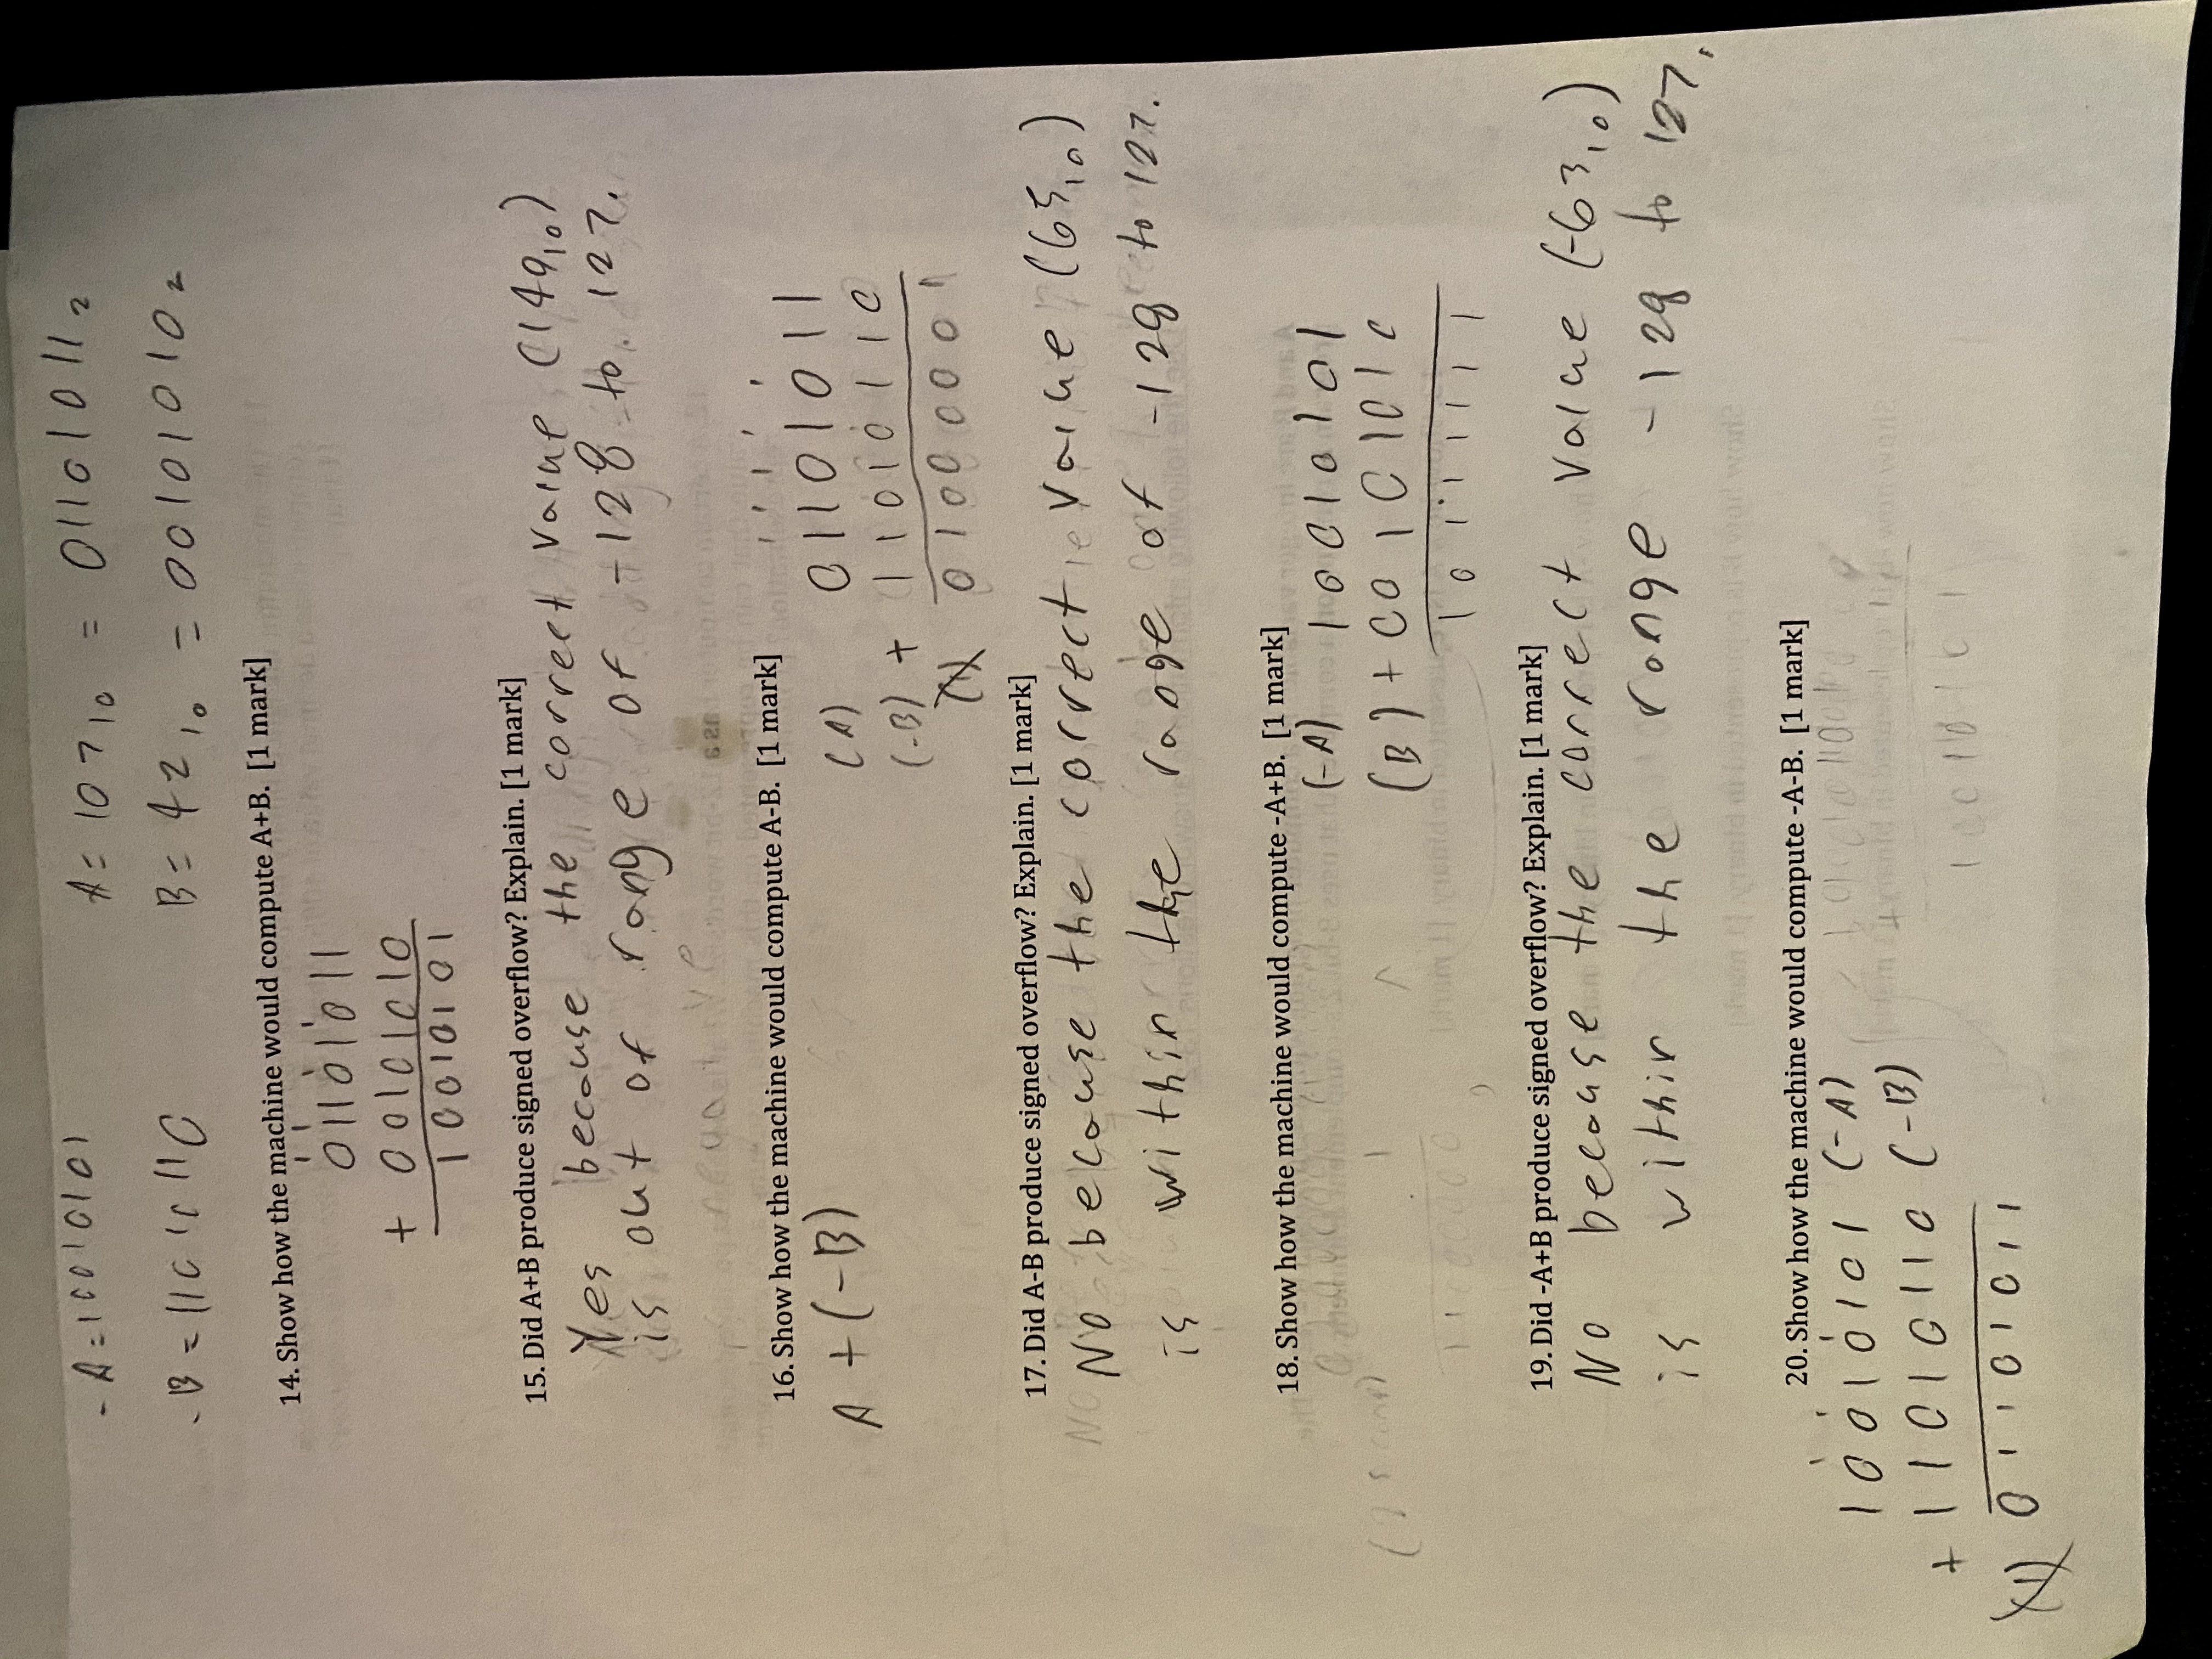 -A=10010101
A= 107₁₀ = 01101011₂
-B = 11010110
B= 42₁₀ = 00101010₂
14. Show how the machine would compute A+B. [1 mark]
01101011
+ 00101010
10010101
15. Did A+B produce signed overflow? Explain. [1 mark]
Yes because the correct value (149₁₀)
is out of range of -128 to 127.
16. Show how the machine would compute A-B. [1 mark]
A + (-B)
(A) 01101011
(-B) + 11010110
(1) 01000001
17. Did A-B produce signed overflow? Explain. [1 mark]
No because the correct value (65₁₀)
is within the range of -128 to 127.
18. Show how the machine would compute -A+B. [1 mark]
(-A) 10010101
(B) + 00101010
10111111
19. Did -A+B produce signed overflow? Explain. [1 mark]
No because the correct value (-63₁₀)
is within the range -128 to 127.
20. Show how the machine would compute -A-B. [1 mark]
10010101 (-A)
+ 11010110 (-B)
(1) 01101011